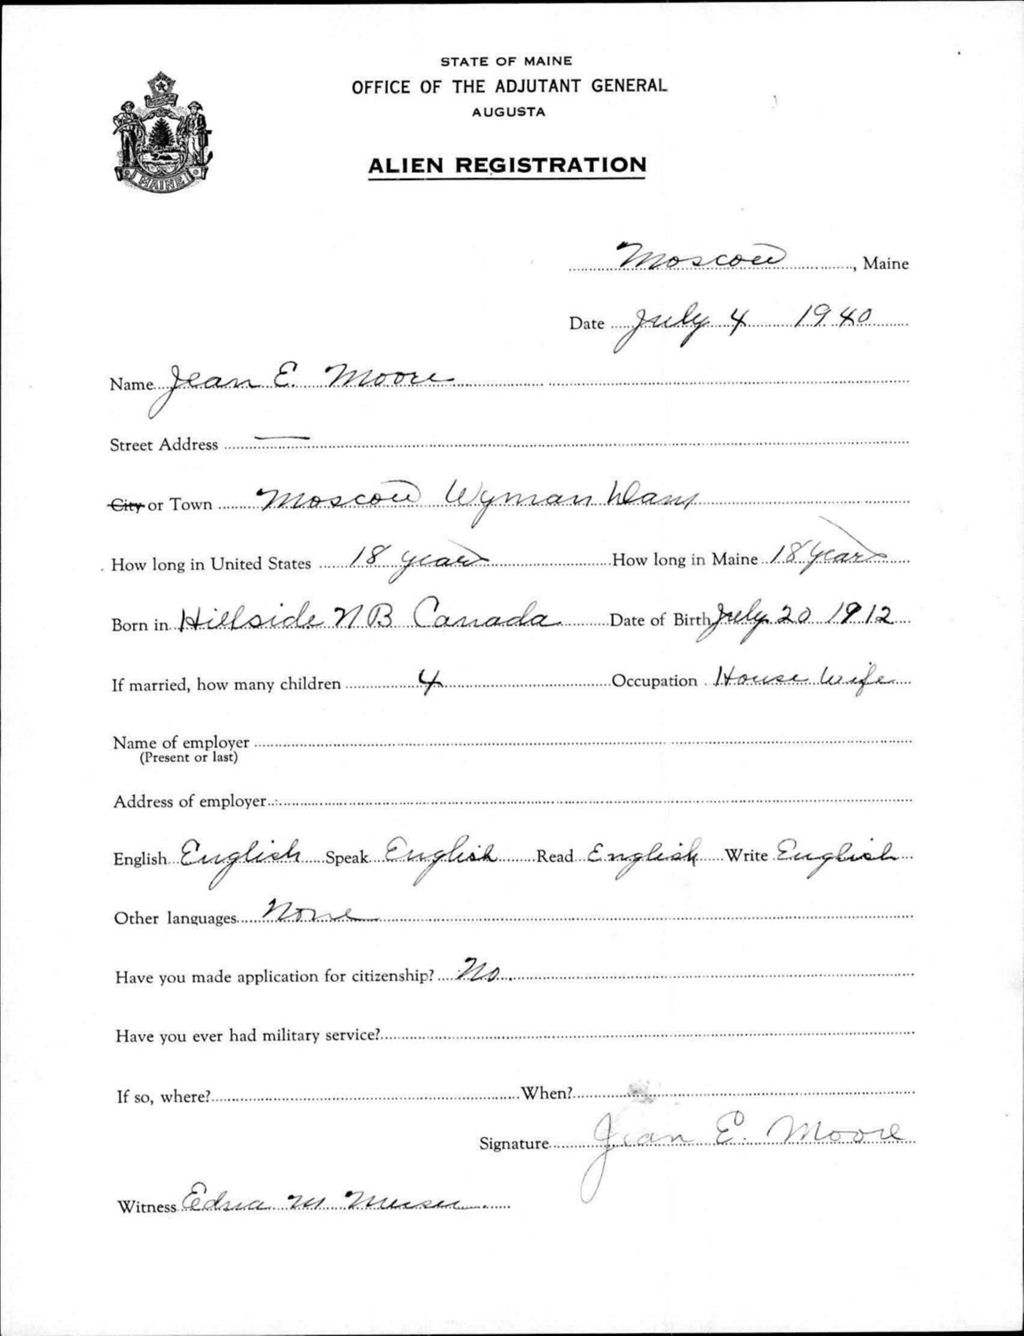 STATE OF MAINE
OFFICE OF THE ADJUTANT GENERAL
AUGUSTA
ALIEN REGISTRATION
MAINE
Moscow, Maine
Date July 4 1940
Name Jean E. Moore
Street Address —
City or Town Moscow Wyman Dam
How long in United States 18 years How long in Maine 18 years
Born in Hillside N B Canada Date of Birth July 20 1912
If married, how many children 4 Occupation House Wife
Name of employer
(Present or last)
Address of employer
English English Speak English Read English Write English
Other languages None
Have you made application for citizenship? No.
Have you ever had military service?
If so, where? When?
Signature Jean E. Moore
Witness Edna M